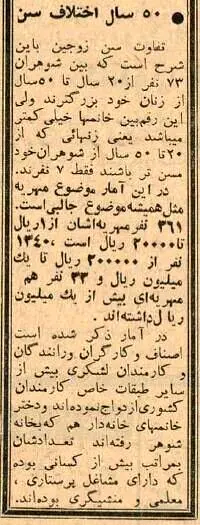 ● ۵۰ سال اختلاف سن
تفاوت سن زوجین باین
شرح است که بین شوهران
۷۳ نفر از ۲۰ سال تا ۵۰ سال
از زنان خود بزرگترند ولی
این رقم بین خانمها خیلی کمتر
میباشد یعنی زنهائی که از
۲۰ تا ۵۰ سال از شوهران خود
مسن تر باشند فقط ۷ نفرند.
در این آمار موضوع مهریه
مثل همیشه موضوع جالبی است.
۳۶۱ نفر مهریه اشان از ۱ ریال
تا ۲۰۰۰۰ ریال است ، ۱۳۴۰
نفر از ۲۰۰۰۰۰ ریال تا یک
میلیون ریال و ۳۳ نفر هم
مهریه ای بیش از یک میلیون
ریال داشته اند.
در آمار ذکر شده است
اصناف و کارگران و رانندگان
و کارمندان لشکری بیش از
سایر طبقات خاص کارمندان
کشوری ازدواج نموده اند و دختر
خانمهای خانه دار هم که بخانه
شوهر رفته اند تعدادشان
بمراتب بیش از کسانی بوده
که دارای مشاغل پرستاری ،
معلمی و منشیگری بوده اند.